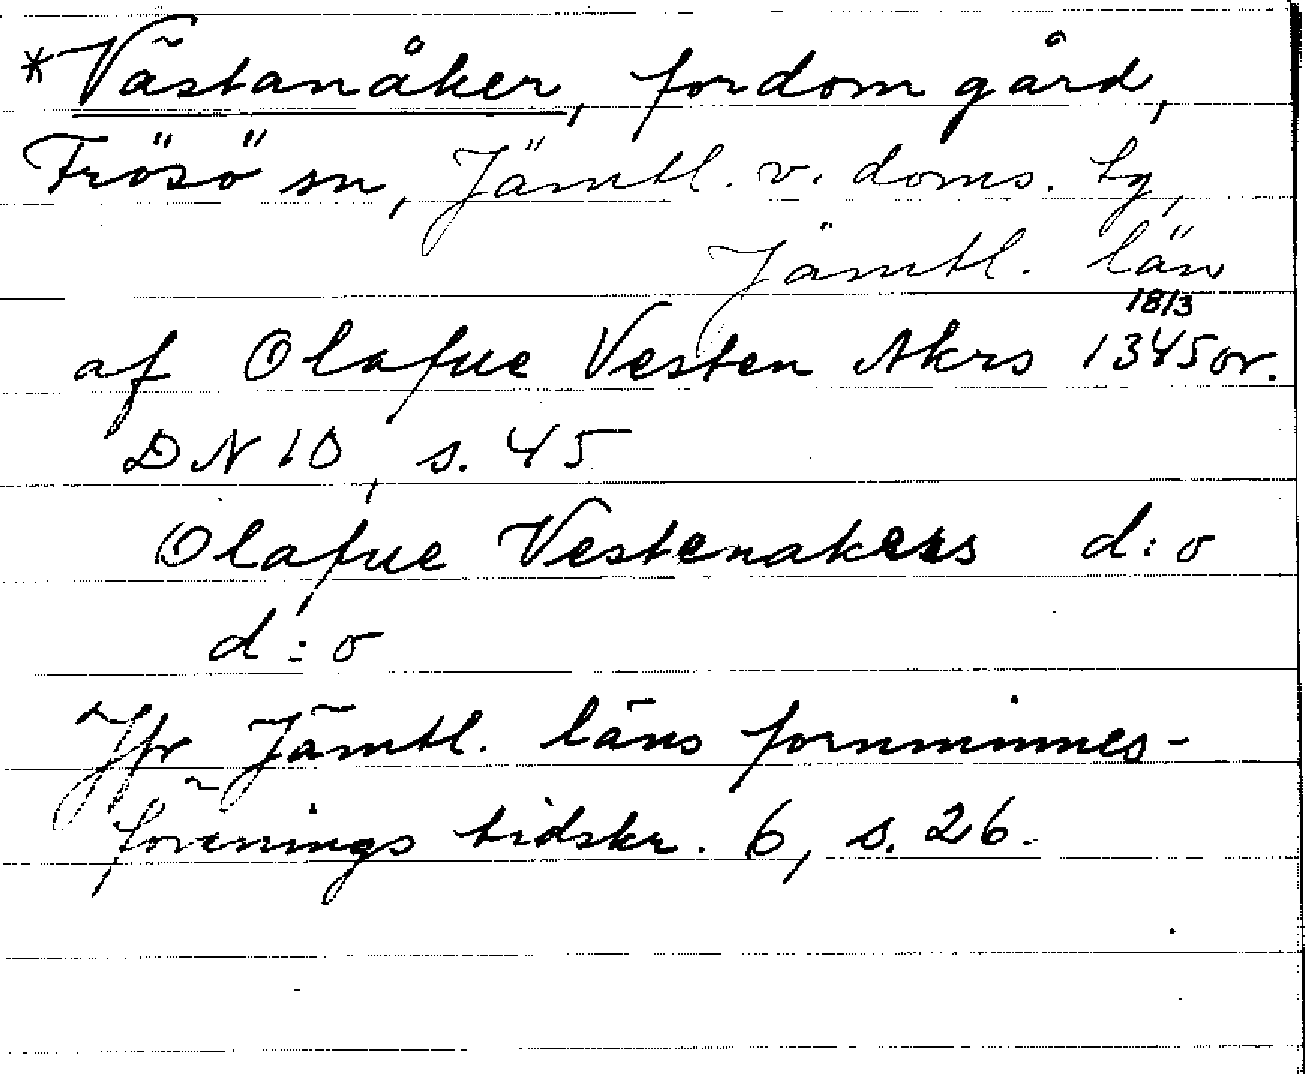 *Västanåker, fordom gård,
Frösö sn, Jämtl. v. doms. tg,
Jämtl. län
af Olafue Vesten Akrs 18/3 1345 or.
DN 10, s. 45
Olafue Vestenakers d:o
d:o
Jfr Jämtl. läns fornminnes-
förenings tidskr. 6, s. 26.